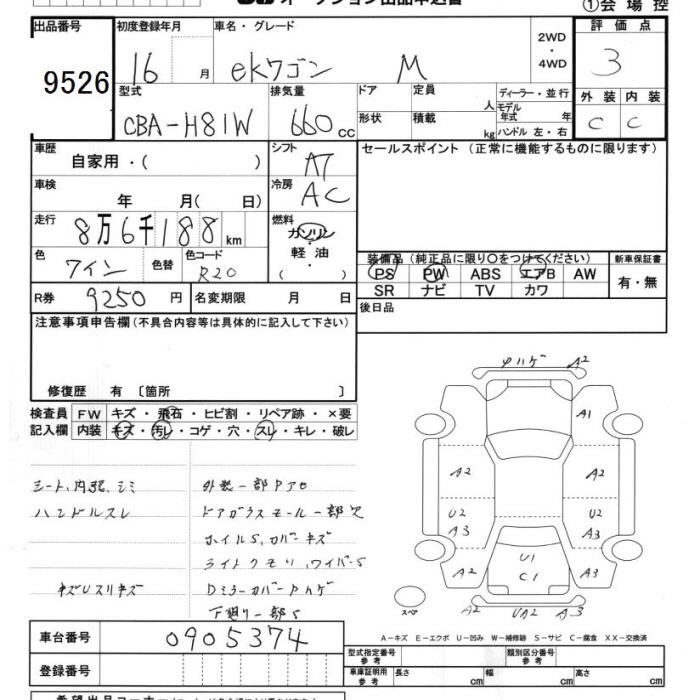 オークション出品申込書 ①会場控
出品番号 初度登録年月 車名・グレード 2WD・4WD 評価点
9526 16 月 ekワゴン M 3
型式 排気量 ドア 定員 人 ディーラー・並行 外装 内装
CBA-H81W 660 cc 形状 積載 kg モデル年式 年 ハンドル 左・右 C C
車歴 自家用・( ) シフト AT セールスポイント (正常に機能するものに限ります)
車検 年 月( 日) 冷房 AC
走行 8万6千188 km 燃料 ガソリン 軽油 ( )
色 ワイン 色替 色コード R20
装備品 (純正品に限り○をつけてください) 新車保証書
PS PW ABS エアB AW 有・無
SR ナビ TV カワ
R券 9250 円 名変期限 月 日 後日品
注意事項申告欄 (不具合内容等は具体的に記入して下さい)
修復歴 有 〔箇所 〕
検査員 FW キズ・飛石・ヒビ割・リペア跡・×要
記入欄 内装 キズ・汚レ・コゲ・穴・スレ・キレ・破レ
シート、内張、シミ
ハンドルスレ
キズUスリキズ
外装一部Pアセ
ドアガラスモール一部欠
ホイルS、カバーキズ
ライトクモリ、ワイパーS
DミラーカバーPハゲ
下廻り一部S
Pハゲ A2
A1
A2 A2
U2 U2
A3 A3
U1
A2 C1 A3
A2 UA2 A3
スペア
A-キズ E-エクボ U-凹み W-補修跡 S-サビ C-腐食 XX-交換済
車台番号 0905374
登録番号
型式指定番号 参考 類別区分番号 参考
車庫証明用 参考 長さ cm 幅 cm 高さ cm
希望出品コーナー